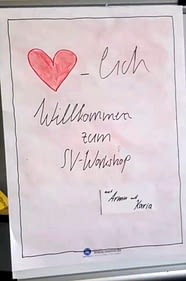 - lich
Willkommen
zum
SV-Workshop
Armin
Karia